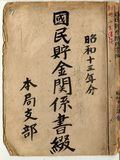 昭和十三年分
國民貯金関係書綴
本局支部